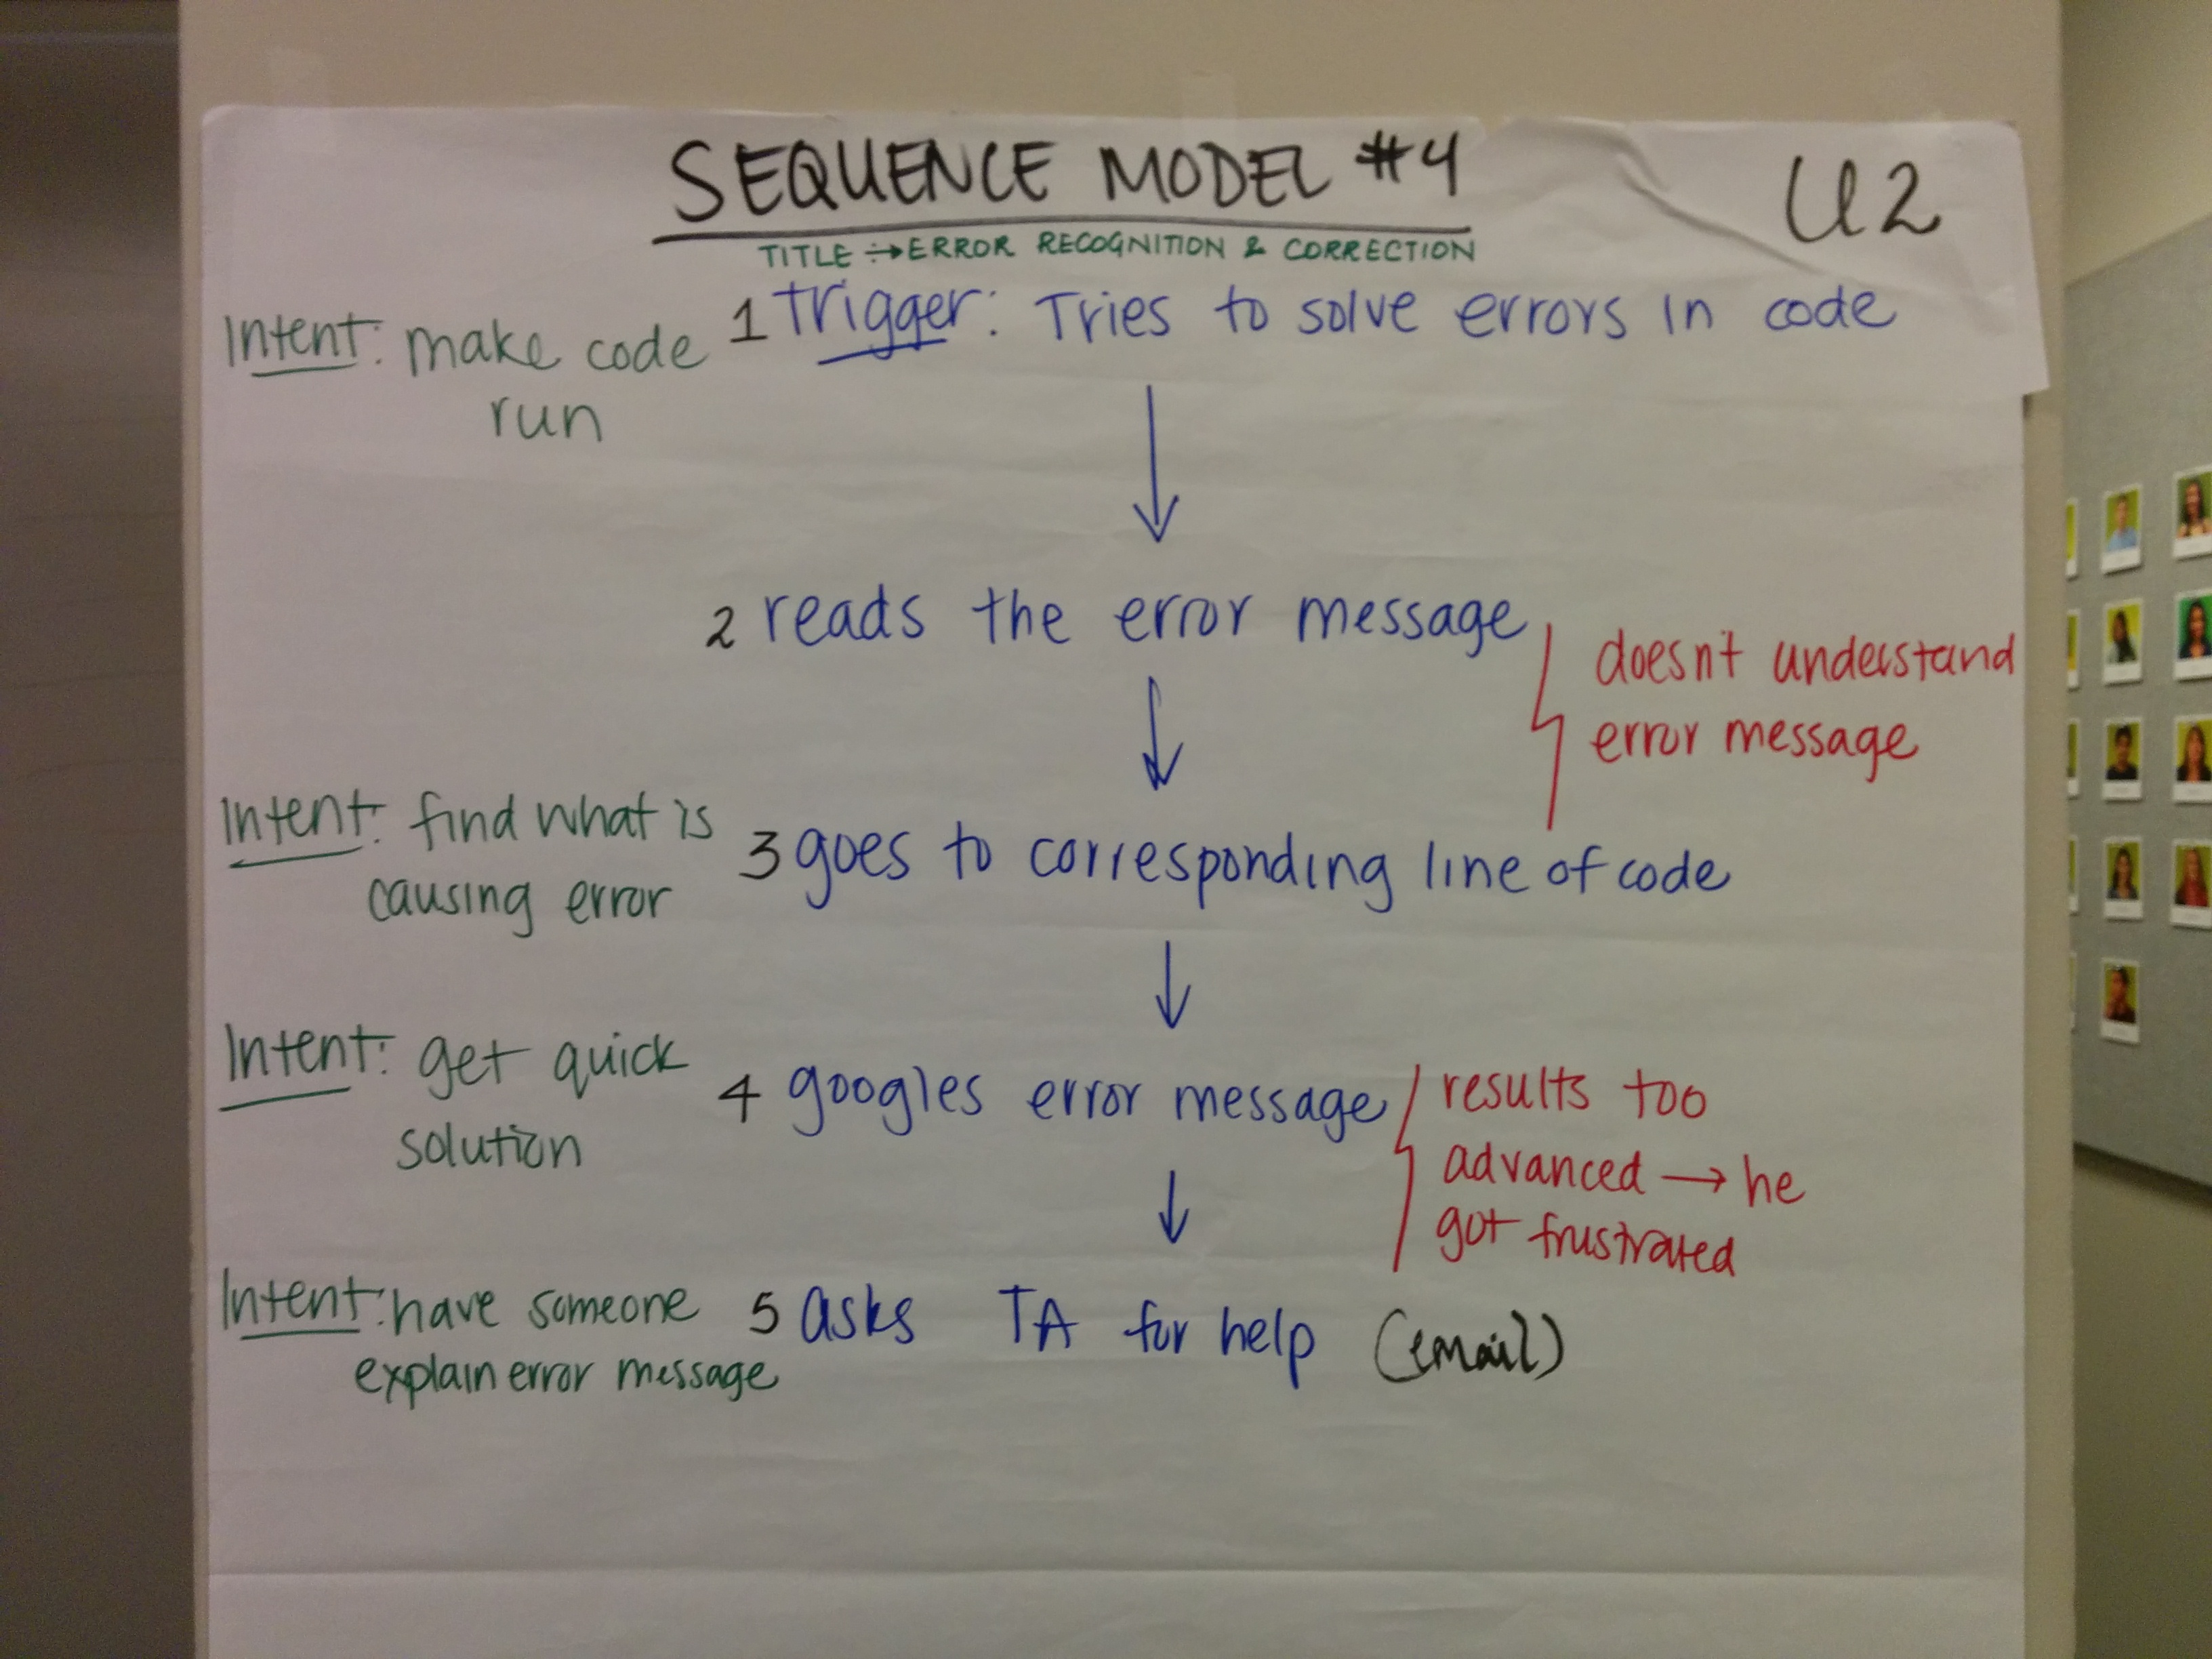 SEQUENCE MODEL #4
U2
TITLE → ERROR RECOGNITION & CORRECTION
Intent: make code
run
1 trigger: Tries to solve errors in code
2 reads the error message
doesn't understand
error message
Intent: find what is
causing error
3 goes to corresponding line of code
Intent: get quick
solution
4 googles error message
results too
advanced → he
got frustrated
Intent: have someone
explain error message
5 asks TA for help (email)